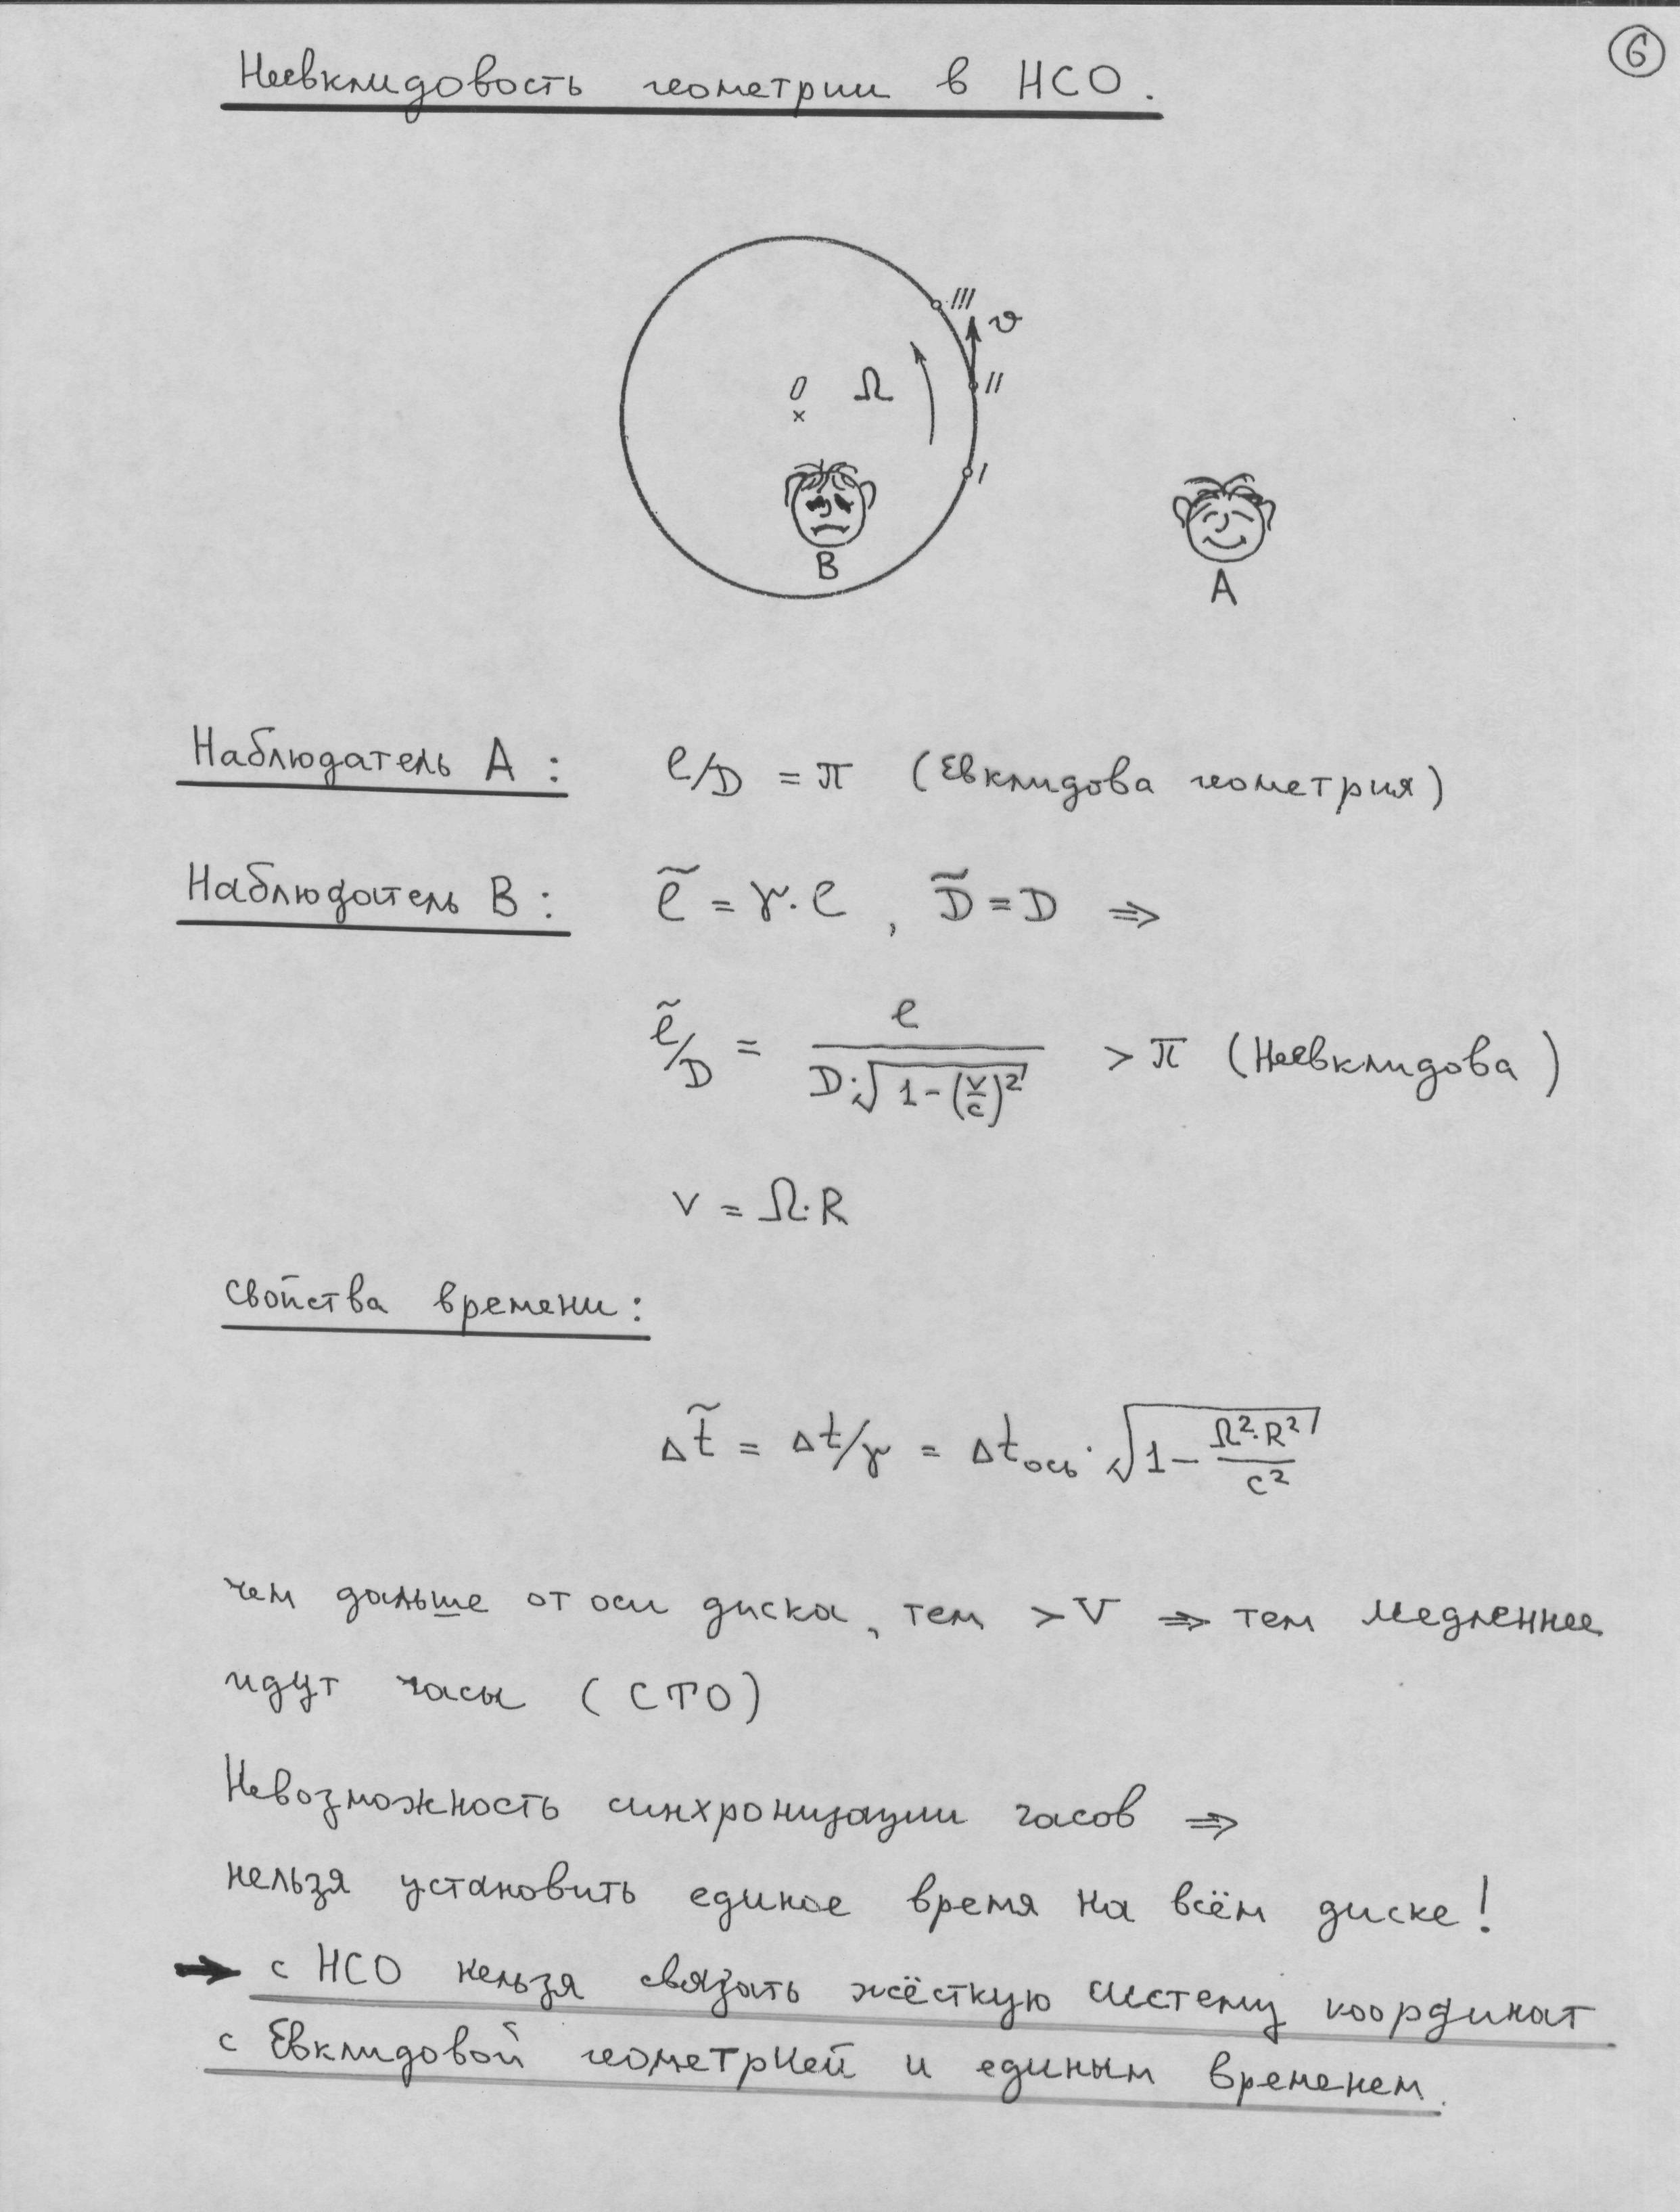 6
Неевклидовость геометрии в НСО.
III
v
O Ω II
I
B
A
Наблюдатель A: l/D = π (Евклидова геометрия)
Наблюдатель B: l̃ = γ·l, D̃ = D ⇒
l̃/D = l / (D·√(1-(v/c)²)) > π (Неевклидова)
v = Ω·R
свойства времени:
Δt̃ = Δt/γ = Δtось·√(1 - Ω²·R²/c²)
чем дальше от оси диска, тем > V ⇒ тем медленнее
идут часы (СТО)
Невозможность синхронизации часов ⇒
нельзя установить единое время на всём диске!
→ с НСО нельзя связать жёсткую систему координат
с Евклидовой геометрией и единым временем.